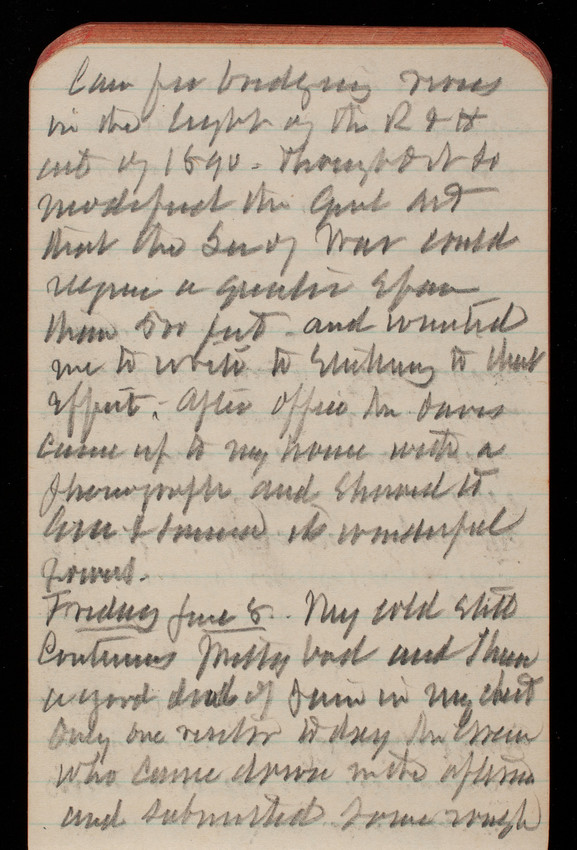 Law for bridging rivers
in the light of the R & H
act of 1890 - thought it so
modified the Genl Act
that the Sec of War could
require a greater Span
than 500 feet - and wanted
me to write to to that
Effect. After office Mr Davis
came up to my house with a
phonograph and showed it
its wonderful
powers.
Friday June 8. My cold still
Continues pretty bad and I have
a good deal of pain in my chest
Only one visitor today Mr Green
who came down in the afternn
and submitted some rough